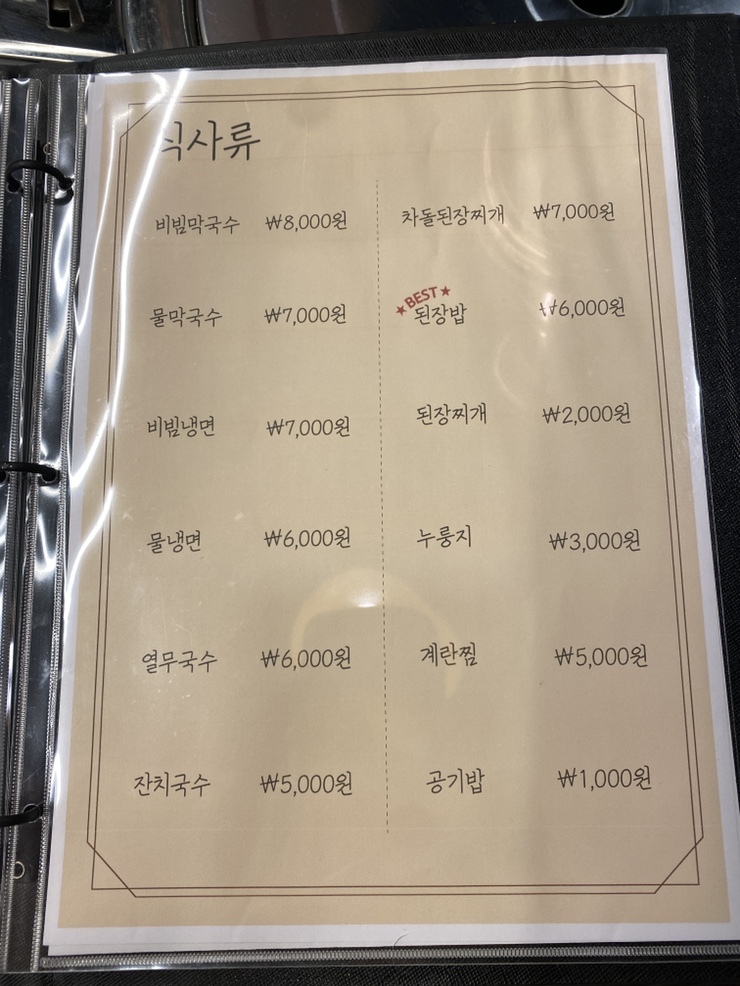 식사류
비빔막국수 ₩8,000원
물막국수 ₩7,000원
비빔냉면 ₩7,000원
물냉면 ₩6,000원
열무국수 ₩6,000원
잔치국수 ₩5,000원
차돌된장찌개 ₩7,000원
★BEST★
된장밥 ₩6,000원
된장찌개 ₩2,000원
누룽지 ₩3,000원
계란찜 ₩5,000원
공기밥 ₩1,000원